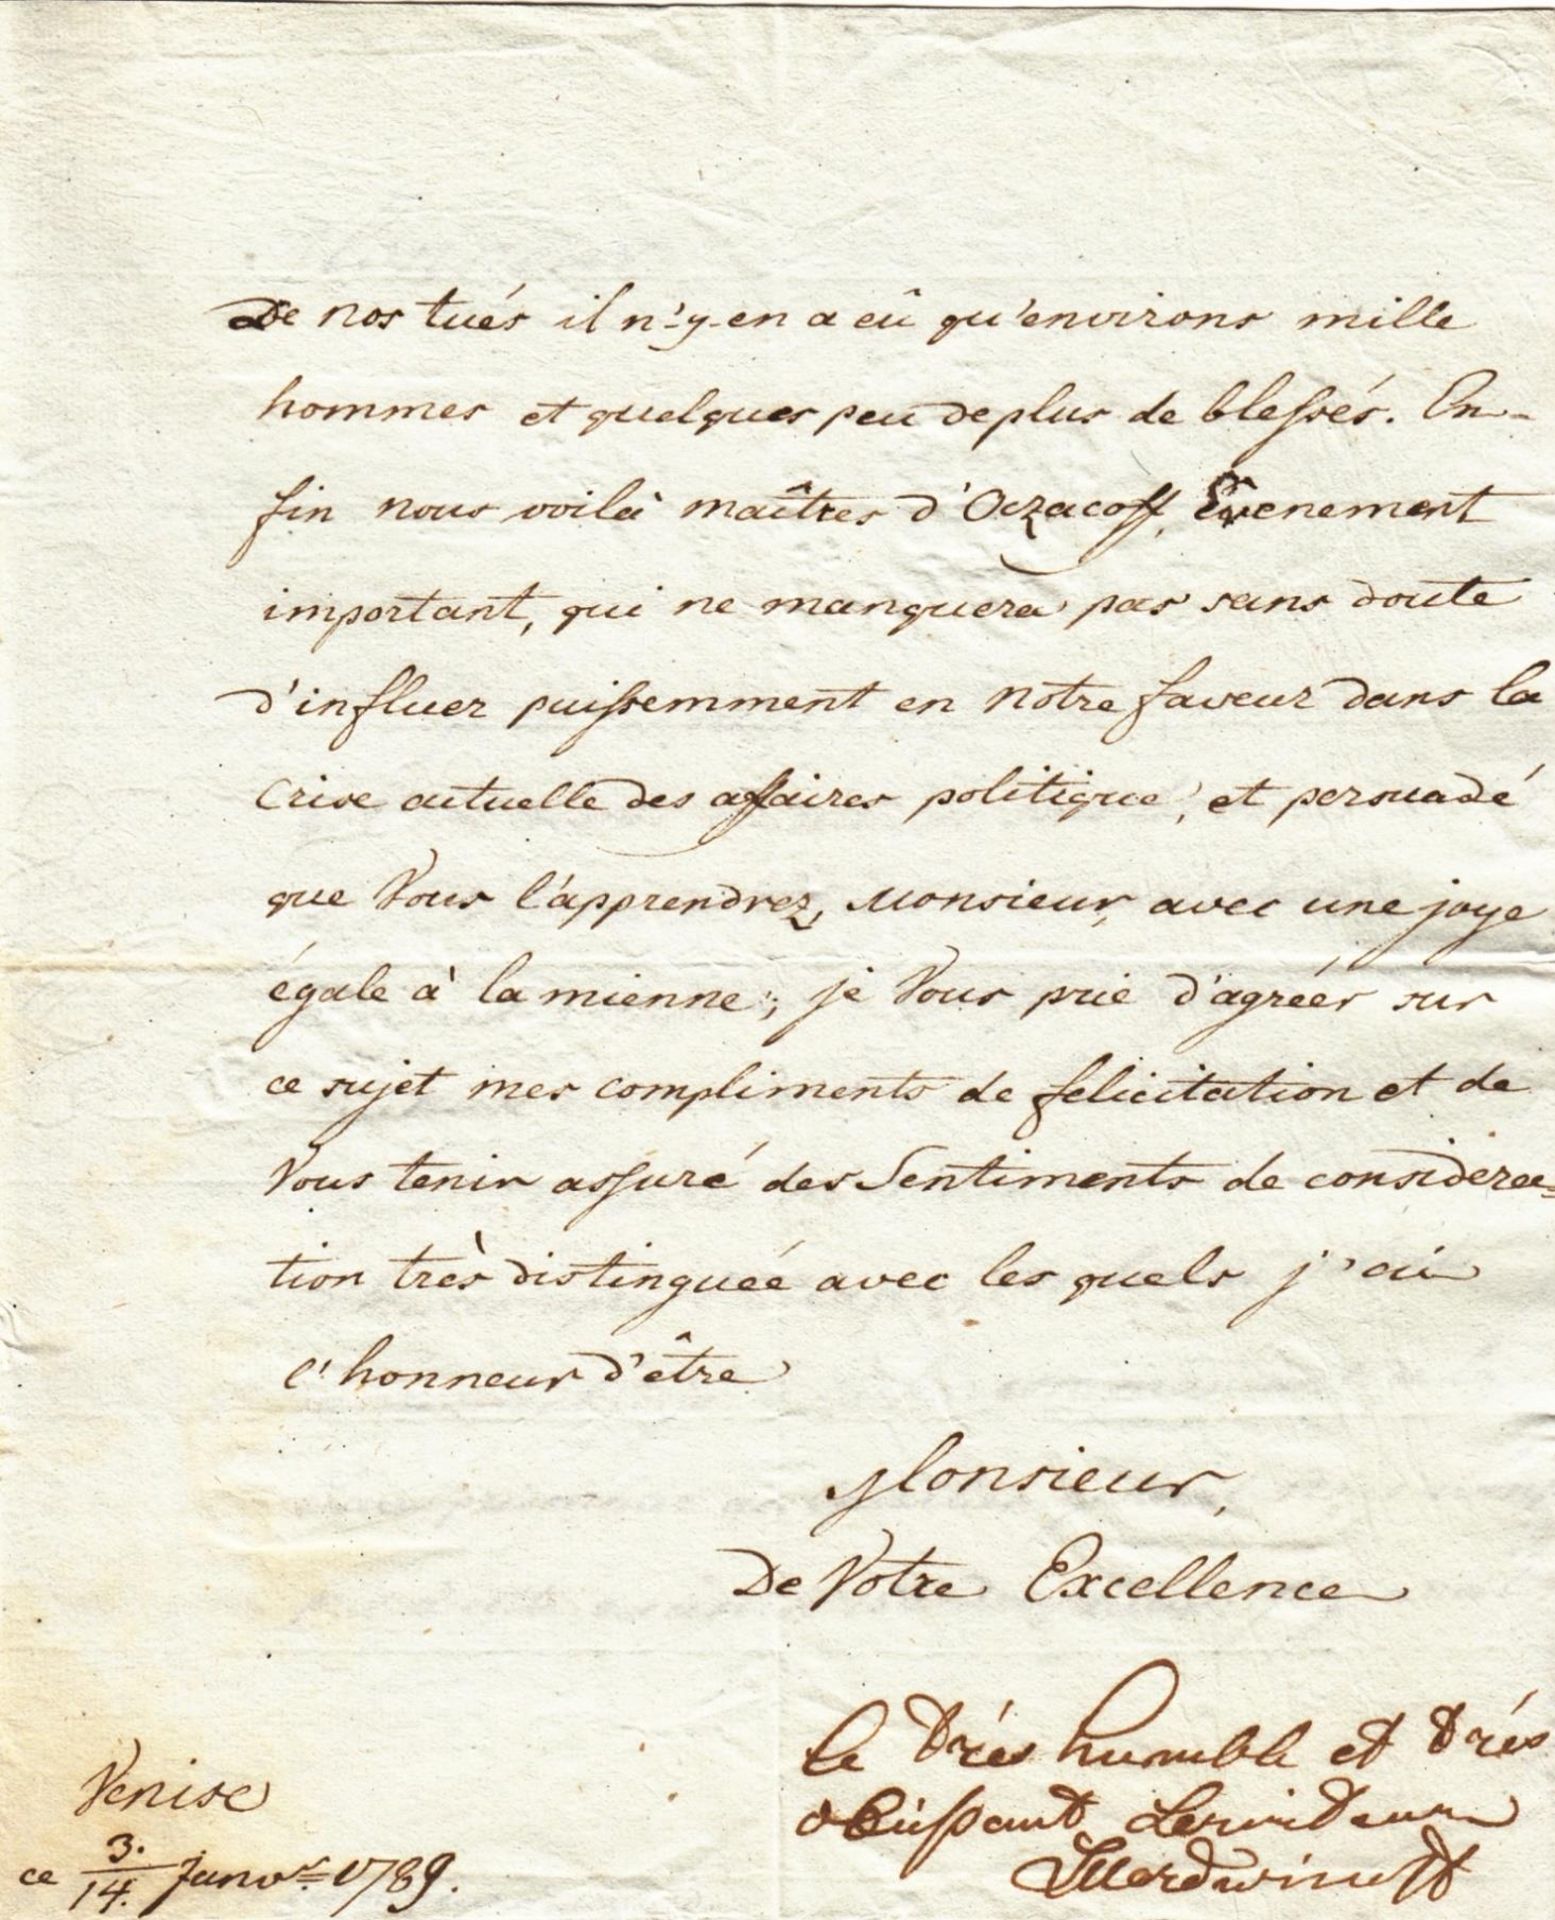 De nos tués il n'y-en a eû qu'environs mille
hommes et quelques peu de plus de blessés. En-
fin nous voilà maîtres d'Oczacoff, Evenement
important, qui ne manquera pas sans doute
d'influer puissemment en notre faveur dans la
Crise actuelle des affaires politique, et persuadé
que Vous l'apprendrez, Monsieur, avec une joye
égale à la mienne; je Vous prie d'agréer sur
ce sujet mes compliments de felicitation et de
Vous tenir assuré des Sentiments de considera=
tion très distinguée avec les quels j'ai
l'honneur d'être
Monsieur,
De Votre Excellence
le très humble et trés
obeissant Serviteur
Mordwinoff
Venise
ce 3./14. Janvr. 1789.